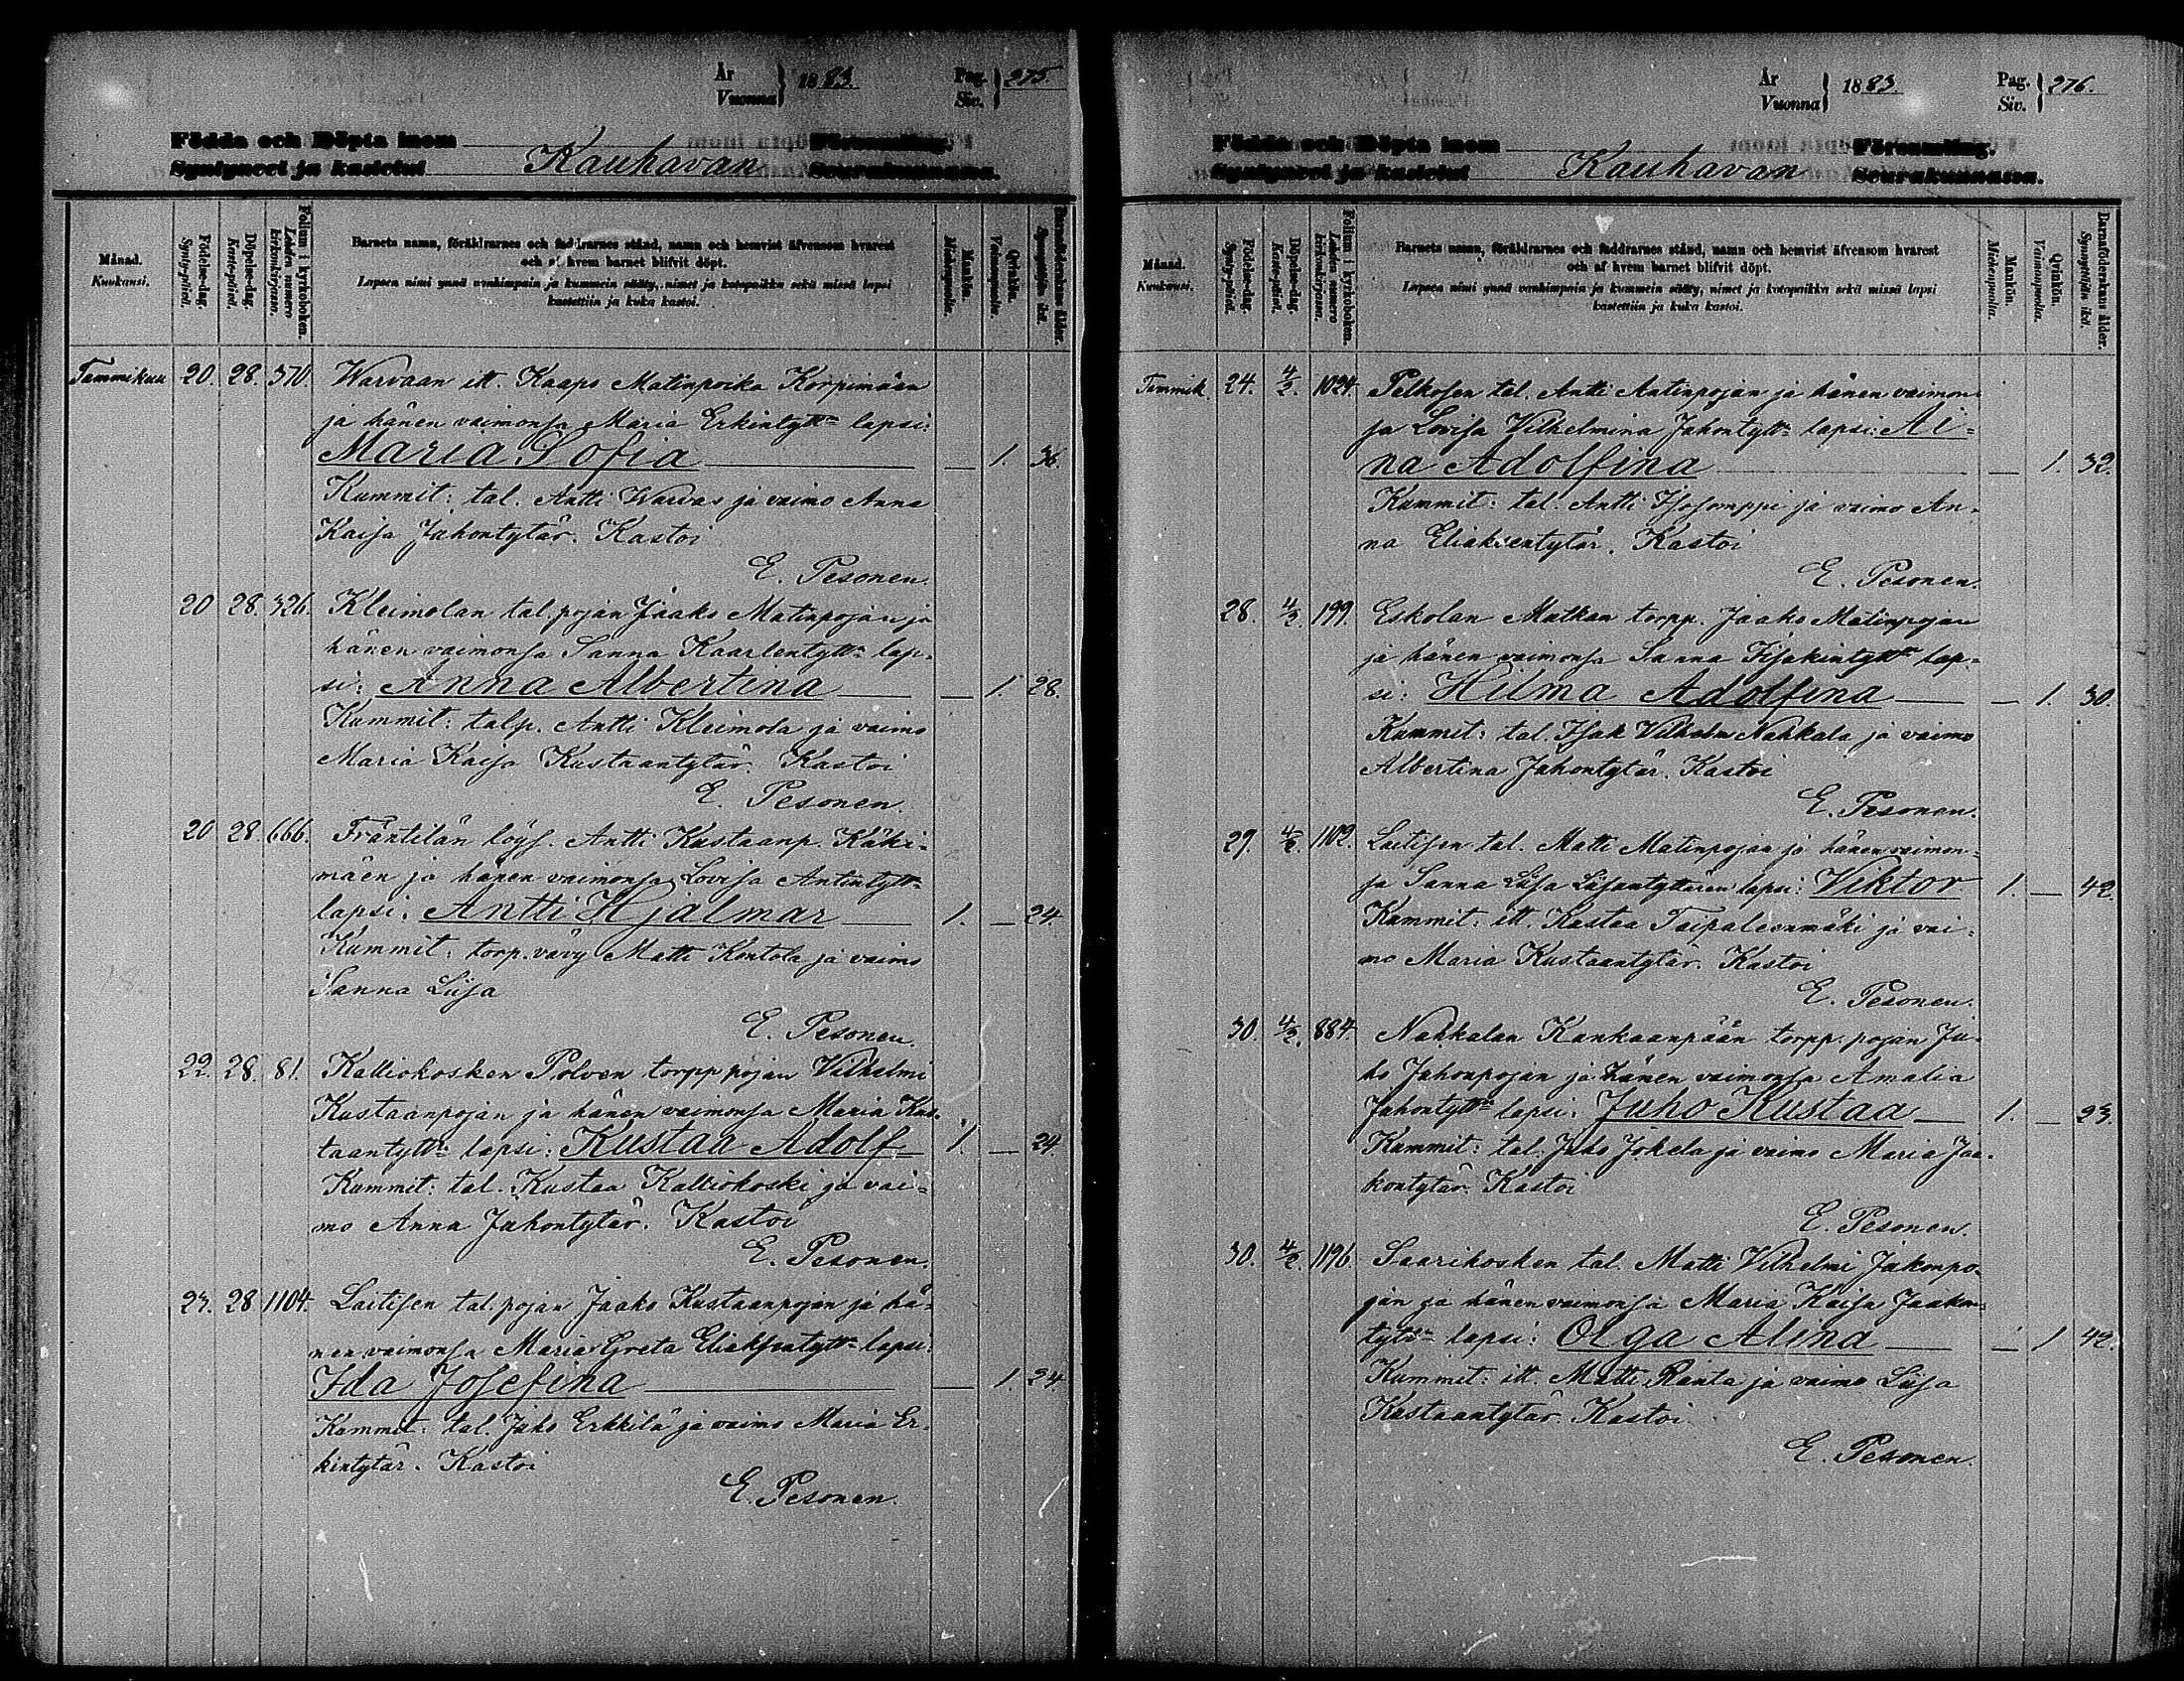 År
Vuonna } 1883.
Pag.
Siv. } 275.
Födda och Döpta inom Församling.
Syntyneet ja kastetut Kauhavan Seurakunnassa.
Månad.
Kuukausi.
Födelse-dag.
Synty-päivä.
Döpelse-dag.
Kaste-päivä.
Folium i kyrkoboken.
Lehden numero kirkonkirjassa.
Barnets namn, föräldrarnes och faddrarnes stånd, namn och hemvist äfvensom hvarest
och af hvem barnet blifvit döpt.
Lapsen nimi ynnä vanhimpain ja kummein sääty, nimet ja kotopaikka sekä missä lapsi
kastettiin ja kuka kastoi.
Mankön.
Miehenpuolia.
Qvinkön.
Vaimonpuolia.
Barnaföderskans ålder.
Synnyttäjän ikä.
Tammikuu 20. 28. 370. Warvaan itt. Kaapo Matinpoika Korpimäen
ja hänen vaimonsa Maria Erkintytt:n lapsi:
Maria Sofia — 1. 36.
Kummit: tal. Antti Warvas ja vaimo Anna
Kaisa Juhontytär. Kastoi
E. Pesonen.
20 28. 326. Kleimolan tal. pojan Jaako Matinpojan ja
hänen vaimonsa Sanna Kaarlentytt:n lap-
si: Anna Albertina — 1. 28.
Kummit: talp. Antti Kleimola ja vaimo
Maria Kaisa Kustaantytär. Kastoi
E. Pesonen.
20 28. 666. Fräntilän löys. Antti Kustaanp. Käki-
mäen ja hänen vaimonsa Lovisa Antintytt:n
lapsi: Antti Hjalmar 1. — 24.
Kummit: torp. vävy Matti Kontola ja vaimo
Sanna Liisa
E. Pesonen.
22. 28. 81. Kalliokosken Polven torpp pojan Vilhelmi
Kustaanpojan ja hänen vaimonsa Maria Kus-
taantytt:n lapsi: Kustaa Adolf 1. — 24.
Kummit: tal. Kustaa Kalliokoski ja vai-
mo Anna Juhontytär. Kastoi
E. Pesonen.
23. 28. 1104. Laitisen tal. pojan Jaako Kustaanpojan ja hä-
nen vaimonsa Maria Greta Eliaksentytt:n lapsi:
Ida Josefina — 1. 24.
Kummit: tal. Juho Erkkilä ja vaimo Maria Er-
kintytär. Kastoi
E. Pesonen.
År
Vuonna } 1883.
Pag.
Siv. } 276.
Födda och Döpta inom Församling.
Syntyneet ja kastetut Kauhavan Seurakunnassa.
Månad.
Kuukausi.
Födelse-dag.
Synty-päivä.
Döpelse-dag.
Kaste-päivä.
Folium i kyrkoboken.
Lehden numero kirkonkirjassa.
Barnets namn, föräldrarnes och faddrarnes stånd, namn och hemvist äfvensom hvarest
och af hvem barnet blifvit döpt.
Lapsen nimi ynnä vanhimpain ja kummein sääty, nimet ja kotopaikka sekä missä lapsi
kastettiin ja kuka kastoi.
Mankön.
Miehenpuolia.
Qvinkön.
Vaimonpuolia.
Barnaföderskans ålder.
Synnyttäjän ikä.
Tammik. 24. 4/2. 1024. Pelkosen tal. Antti Antinpojan ja hänen vaimon-
sa Lovisa Vilhelmina Juhontytt:n lapsi: Ai-
na Adolfina — 1. 32.
Kummit: tal. Antti Isosomppi ja vaimo An-
na Eliaksentytär. Kastoi
E. Pesonen.
28. 4/2. 199. Eskolan Matkan torpp. Jaako Matinpojan
ja hänen vaimonsa Sanna Iisakintytt:n lap-
si: Hilma Adolfina — 1. 30.
Kummit: tal. Isak Vilhelm Nahkala ja vaimo
Albertina Juhontytär. Kastoi
E. Pesonen.
29. 4/2. 1102. Laitisen tal. Matti Matinpojan ja hänen vaimon-
sa Sanna Liisa Liisantyttären lapsi: Viktor 1. — 42.
Kummit: itt. Kustaa Taipaleenmäki ja vai-
mo Maria Kustaantytär. Kastoi
E. Pesonen.
30. 4/2. 884. Nahkalan Kankaanpään torpp. pojan Ju-
ho Juhonpojan ja hänen vaimonsa Amalia
Juhontytt:n lapsi: Juho Kustaa 1. — 23.
Kummit: tal. Juho Jokela ja vaimo Maria Jaa-
kontytär. Kastoi
E. Pesonen.
30. 4/2. 1196. Saarikosken tal. Matti Vilhelmi Jakonpo-
jan ja hänen vaimonsa Maria Kaisa Jaakon-
tytt:n lapsi: Olga Alina — 1 42.
Kummit: itt. Matti Ranta ja vaimo Liisa
Kustaantytär. Kastoi
E. Pesonen.